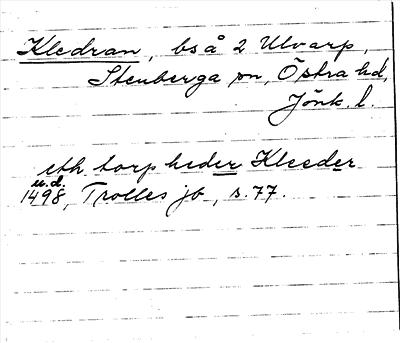 Kledran, bs å 2 Ulvarp,
Stenberga sn, Östra hd,
Jönk. l.
eth torp heder Kleeder
u.d.
1498, Trolles jb, s. 77.